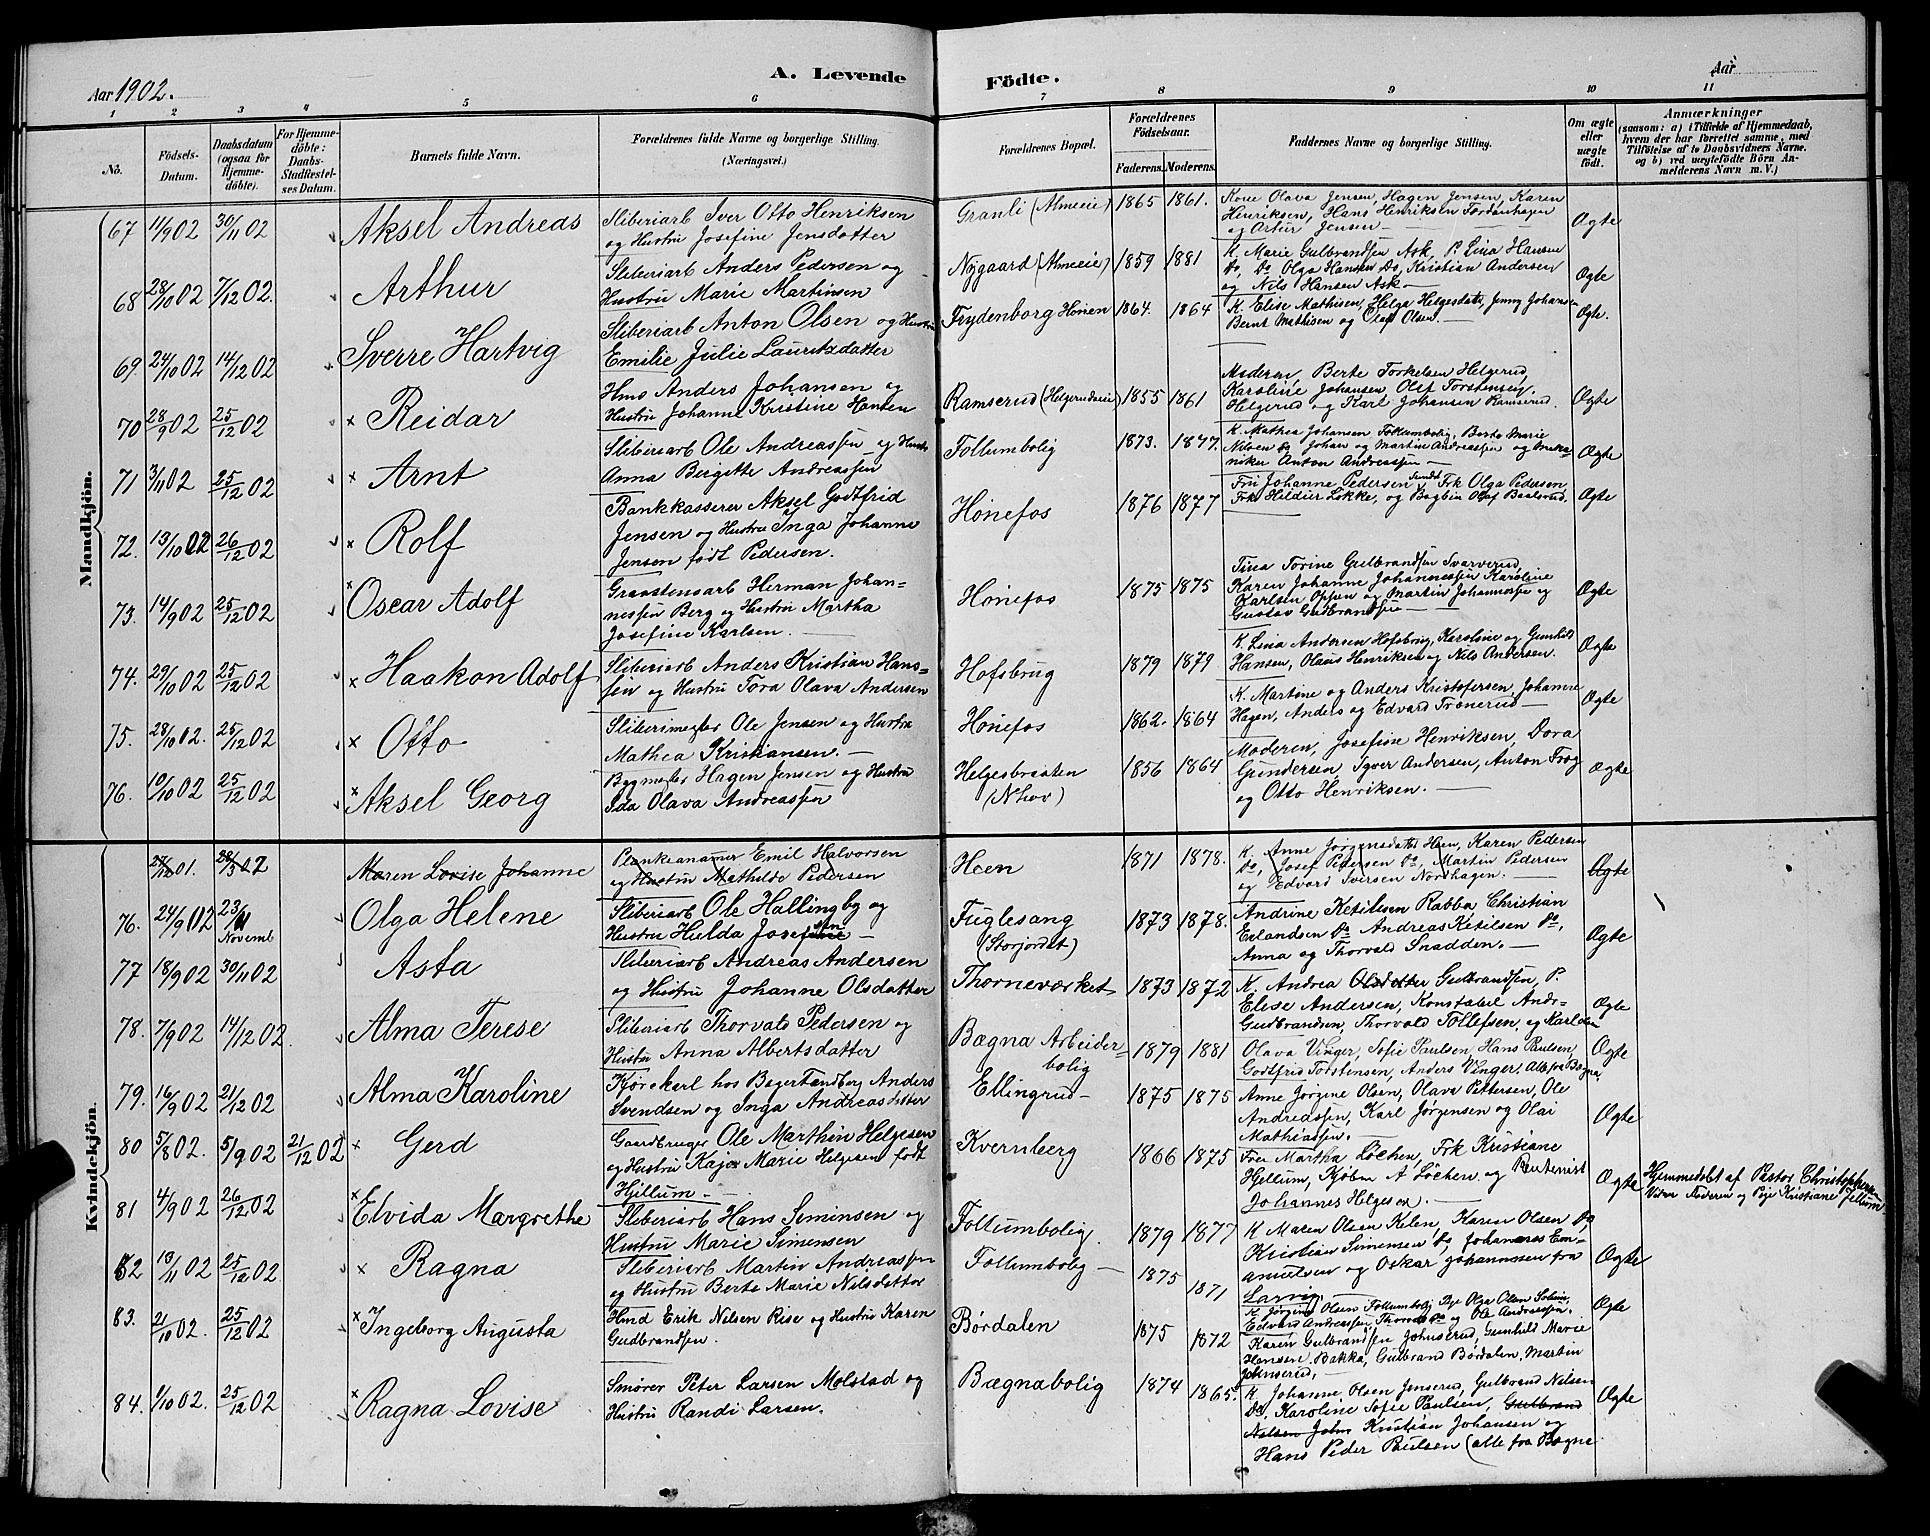 Aar 1902.
A. Levende
Födte.
Aar
1 2 3 4 5 6 7 8 9 10 11
No.
Födsels-Datum.
Daabsdatum (ogsaa for Hjemmedöbte).
For Hjemmedöbte: Daabs-Stadfæstelses Datum.
Barnets fulde Navn.
Forældrenes fulde Navne og borgerlige Stilling.
(Næringsvei.)
Forældrenes Bopæl.
Forældrenes Födselsaar.
Faderens. Moderens.
Faddernes Navne og borgerlige Stilling.
Om ægte eller uægte födt.
Anmærkninger
(saasom: a) i Tilfælde af Hjemmedaab,
hvem der har forrettet samme, med
Tilföielse af to Daabsvidners Navne.
og b) ved uægtefödte Börn An-
melderens Navn m. V.)
Mandkjön.
67 11/9 02 30/11 02 Aksel Andreas
Sliberiarb Iver Otto Henriksen
og Hustru Josefine Jensdatter
Granli (Almeeie) 1865 1861.
Kone Olava Jensen, Hagen Jensen, Karen
Henriksen, Hans Henriksen
og Artur Jensen
Ægte
68 28/10 02 7/12 02. Arthur
Sliberiarb Anders Pedersen og
Hustru Marie Martinsen
Nygaard (Almeeie) 1859 1881
K. Marie Gulbrandsen Ask, P. Lina Hansen
Do, Do Olga Hansen Do, Kristian Andersen
og Nils Hansen Ask
Ægte
69. 24/10 02 14/12 02 Sverre Hartvig
Sliberiarb Anton Olsen og Hustru
Emilie Julie Lauritzdatter
Frydenborg Hönen 1864. 1864
K. Elise Mathisen, Helga Helgesdatr, Jenny Johansen
Bernt Mathisen og Olaf Olsen.
Ægte.
70 28/9 02 25/12 02 Reidar
Hmd Anders Johansen og
Hustru Johanne Kristine Hansen
Ramserud (Helgerudeie) 1855 1861
Moderen, Berte Torkelsen Helgerud,
Karoline Johansen, Olef Torstensen,
Helgerud og Karl Johansen Ramserud.
Ægte
71 3/11 02 25/12 02 Arnt
Sliberiarb Ole Andreassen og Hustru
Anna Bergitte Andreassen
Follumbolig 1873. 1877.
K. Mathea Johansen, Follumbolig, Berte Marie
Nilsen Do Johan og Martin Andreassen og meka-
niker Anton Andreassen
Ægte
72. 13/10 02 26/12 02 Rolf
Bankkasserer Aksel Godtfrid
Jensen og Hustru Inga Johanne
Jensen födt Pedersen.
Hönefos 1876 1877
Fru Johanne Pedersen, Frk Olga Pedersen,
Frk Hildur Lökke, og Olaf
Ægte
73. 14/9 02 25/12 02 Oscar Adolf
Graastensarb Herman Johan-
nessen Berg og Hustru Martha
Josefine Karlsen.
Hönefos 1875 1875
Tina Torine Gulbrandsen Svarverud,
Karen Johanne Johannessen Karoline
Karlsen Oppen og Martin Johannessen og
Gustav Gudbrandsen
Ægte
74. 29/10 02 25/12 02 Haakon Adolf
Sliberiarb Anders Kristian Hans-
sen og Hustru Tora Olava Andersen
Hofsbrug 1879 1879
K. Lina Andersen Hofsbrug, Karoline og Gunhild
Hansen, Olaus Henriksen og Nils Andersen.
Ægte
75. 28/10 02. 25/12 02 Otto
Sliberimester Ole Jensen og Hustru
Mathea Kristiansen.
Hönefos 1862. 1864
K. Martine og Anders Kristofersen, Johanne
Hagen, Anders og Edvard Tronerud
Ægte
76. 10/10 02 25/12 02 Aksel Georg
Bygmester Hagen Jensen og Hustru
Ida Olava Andreassen
Helgesbraaten
(N hov)
1856 1864
Moderen, Josefine Henriksen, Dora
Gundersen, Iver Andersen, Anton Frog
og Otto Henriksen.
Ægte
Kvindekjön.
27/12 01. 28/3 02 Maren Lovise Johanne
Plankeanamer Emil Halvorsen
og Hustru Mathilde Pedersen
Heen 1871 1878.
K. Anne Jørgensdatter Heen, Karen Pedersen
Do, Josef Pedersen Do, Martin Pedersen
og Edvard Iversen Nordhagen.
Ægte
76. 24/9 02 23/11 Novemb Olga Helene
Sliberiarb Ole Hallingby og
Hustru Hulda Josefsen
Fuglesang
(Storjordet)
1873 1878.
Andrine Ketilsen Rabba Christian
Erlandsen Do Andreas Ketilsen Do,
Anna og Thorvald Snadden.
Ægte
77 18/9 02 30/11 02 Asta
Sliberiarb Andreas Andersen
og Hustru Johanne Olsdatter
Thorneværket 1873 1872
K. Andrea Olsdatter Gulbrandsen, P.
Elise Andersen, Konstabel Andr-
Gudbrandsen, Thorvald Tollefsen, og Karl den
Ægte
78. 7/9 02 14/12 02. Alma Terese
Sliberiarb Thorvald Pedersen og
Hustru Anna Albertsdatter
Bægna Arbeider-
bolig
1879 1881
Olava Vinger, Sofie Paulsen, Hans Paulsen,
Godtfrid Torstensen, Anders Vinger, Alle fra Bægna.
Ægte
79. 16/9 02 21/12 02 Alma Karoline
Kjørekarl hos Bager Tandberg Anders
Svendsen og Inga Andreasdatter
Ellingrud 1875 1875
Anne Jørgine Olsen, Olava Pettersen, Ole
Andreassen, Karl Jørgensen og Olai
Mathiassen.
Ægte
80 5/8 02. 5/9 02 21/12 02 Gerd
Gaardbruger Ole Marthin Helgesen
og Hustru Kaja Marie Helgesen födt
Hjellum.
Kvernberg 1866 1875
Fru Martha Løchen, Frk Kristiane
Hjellum, Kjøbm A Løchen og
Johannes Helgesen.
Ægte
Hjemmedøbt af Pastor Christophersen
Vidner Faderen og Pige Kristiane Jellum.
81 4/9 02 26/12 02 Elvida Margrethe
Sliberiarb Hans Siminsen og
Hustru Marie Simensen
Follumbolig. 1879 1877
K Maren Olsen Kelen, Karen Olsen Do,
Kristian Simensen Do Johannes Em-
anuelsen og Oskar Johannesen fra
Larvig.
Ægte
82 13/11 02 25/12 02 Ragna
Sliberiarb Martin Andreassen
og Hustru Berte Marie Nilsdatter
Follumbolig 1875 1871
K. Jørgine Olsen Follumbolig Pige Olga Olsen
Edvard Andreassen Do og Ole Andreassen.
Ægte
83. 21/10 02. 25/12 02 Ingeborg Augusta
Hmd Erik Nilsen Rise og Hustru Karen
Gudbrandsen.
Børdalen 1875 1872
Karen Gulbrandsen Johnserud, Gunhild Marie
Hansen, Bakka, Gulbrand Børdalen, Martin
Johnserud,
84. 1/10 02. 25/12 02 Ragna Lovise
Smører Peter Larsen Molstad og
Hustru Randi Larsen.
Bægnabolig 1874 1865.
K. Johanne Olsen Jenserud, Gulbrand Nilsen
Do, Karoline Sofie Paulsen, Gulbrand
Nilsen John Kristian Johansen og
Hans Peder Paulsen (alle fra Bægna
Ægte